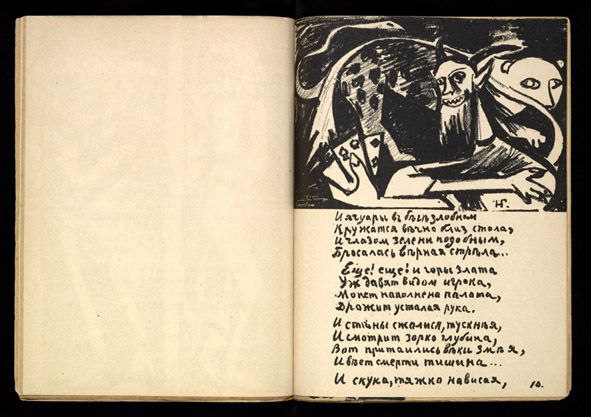 НГ.
И ягуары в бѣгѣ злобном
Кружатся вѣчно близ стола,
И глазом зелени подобным,
Бросалась вѣрная стрѣла...
Еще! еще! и горы злата
Уж давят видом игрока,
Монет наполнена палата,
Дрожит усталая рука.
И стѣны сжалися, тускнѣя,
И смотрит зорко глубина,
Вот притаились вѣки змѣя,
И вѣет смерти тишина...
И скука, тяжко нависая,
10.